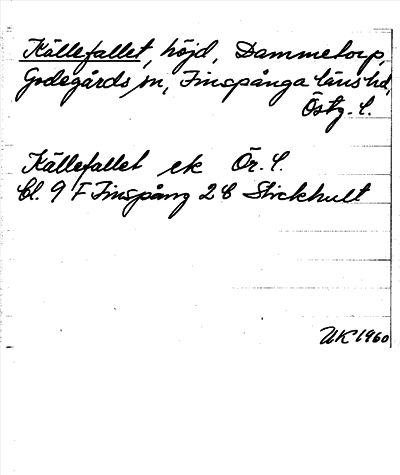 Källefallet, höjd, Dammetorp,
Godegårds sn, Finspånga läns hd,
Östg. L.
Källefallet ek Ör. L.
Bl. 9 F Finspång 2 C Stickhult
UK 1960